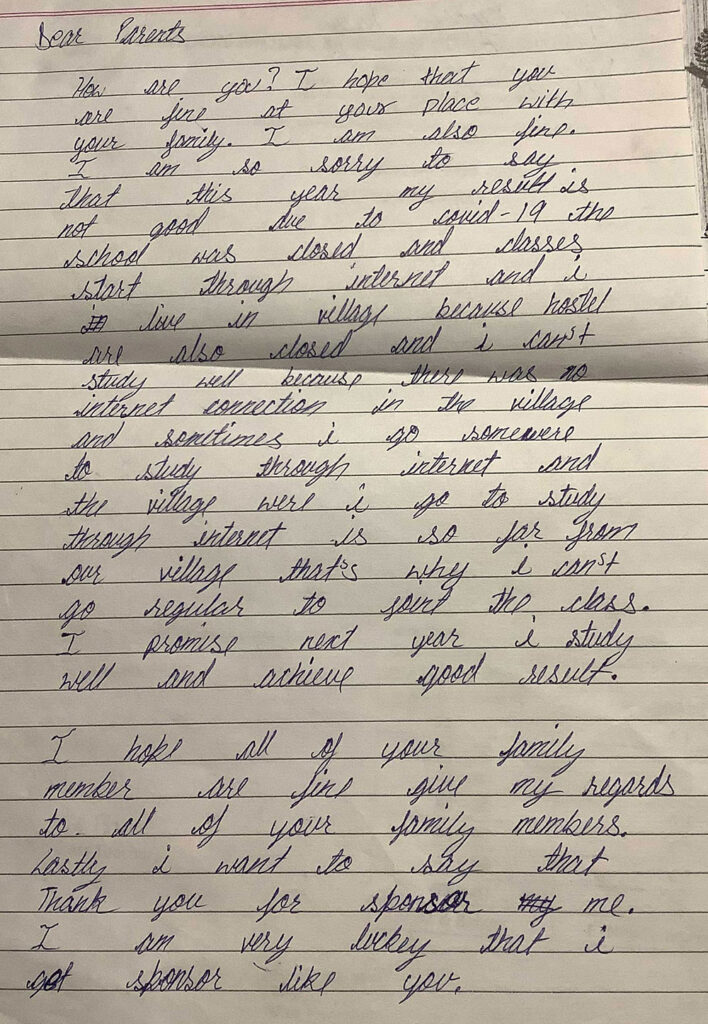 Dear Parents
How are you? I hope that you
are fine at your place with
your family. I am also fine.
I am so sorry to say
that this year my result is
not good due to covid-19 the
school was closed and classes
start through internet and i
live in village because hostel
are also closed and i can't
study well because there was no
internet connection in the village
and sometimes i go somewere
to study through internet and
the village were i go to study
through internet is so far from
our village that's why i can't
go regular to joint the class.
I promise next year i study
well and achieve good result.
I hope all of your family
member are fine give my regards
to all of your family members.
Lastly i want to say that
Thank you for sponsor me.
I am very luckey that i
got sponsor like you.